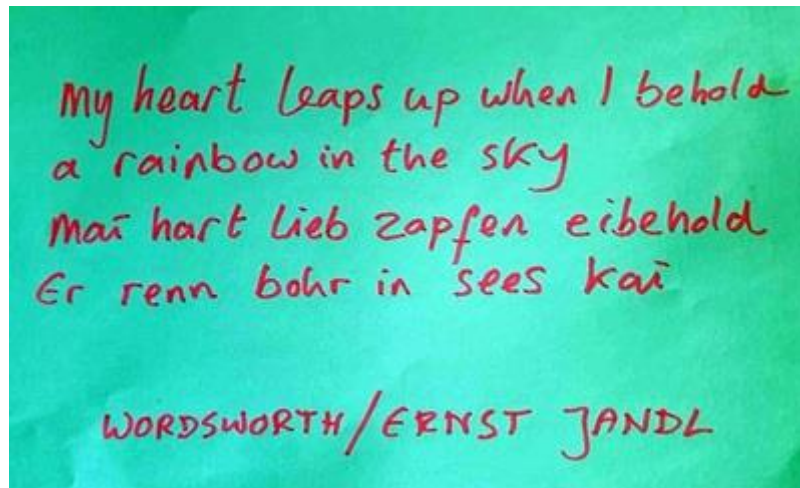 My heart leaps up when I behold
a rainbow in the sky
Mai hart lieb zapfen eibehold
Er renn bohr in sees kai
WORDSWORTH/ERNST JANDL